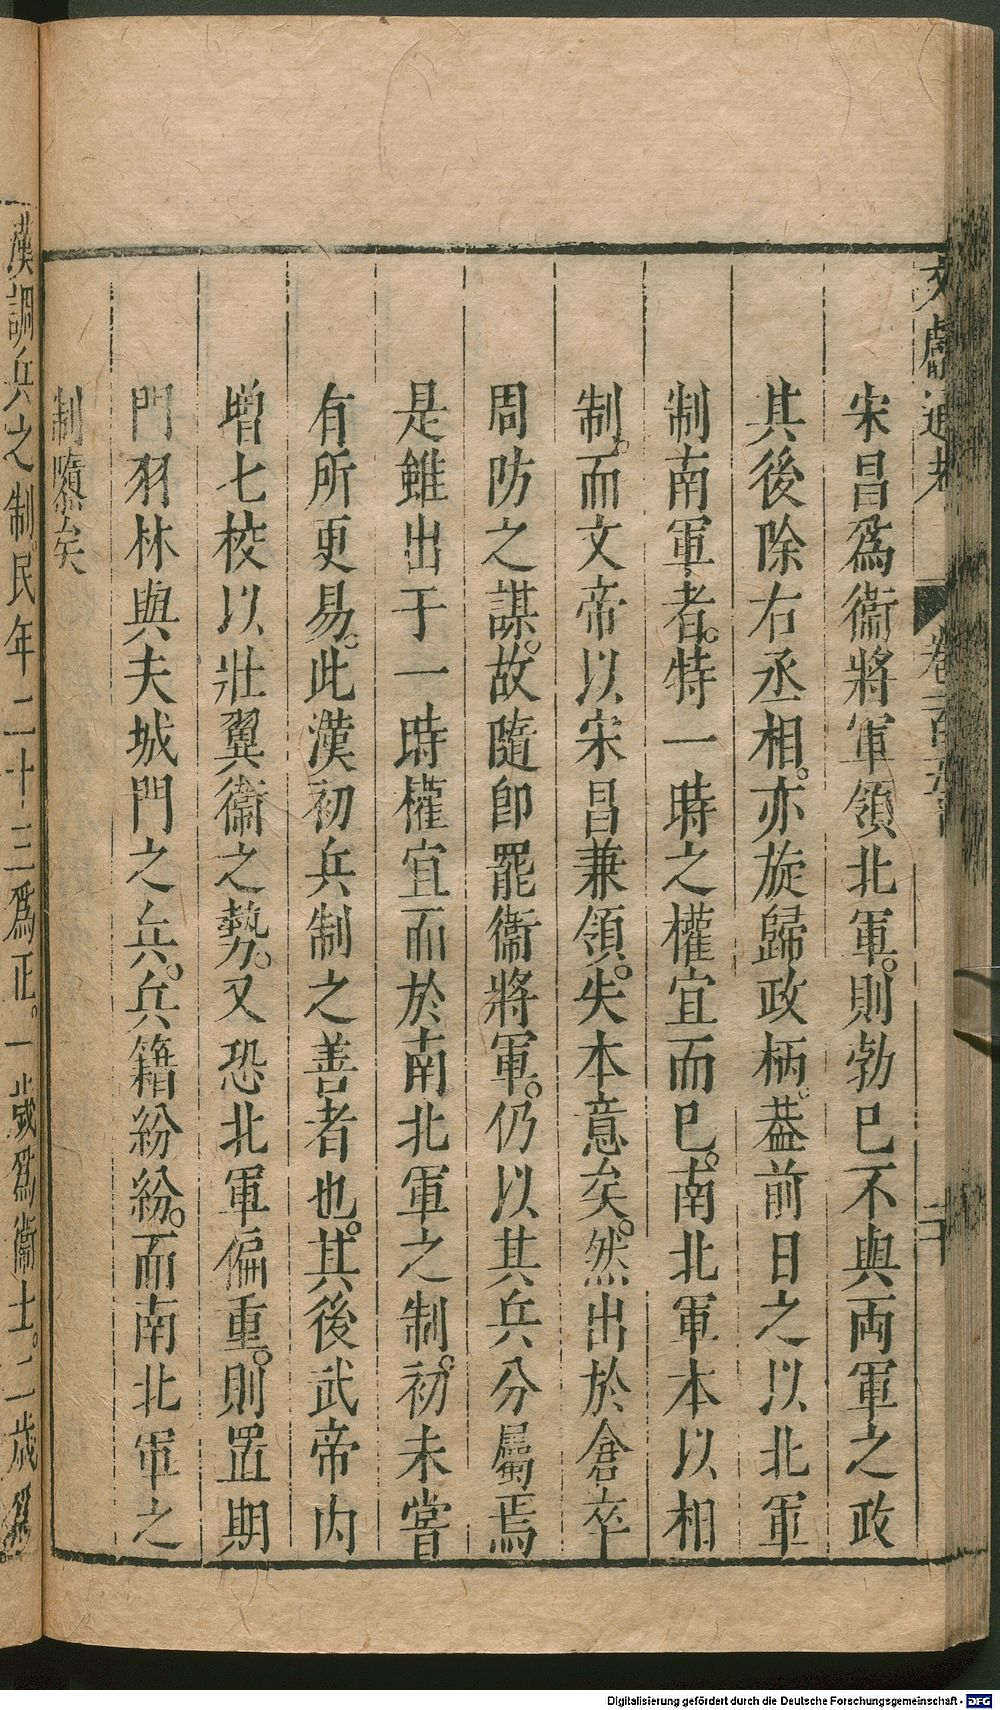 文獻通考 卷一百五十 二十
宋昌爲衞將軍領北軍。則勃已不與両軍之政
其後除右丞相。亦旋歸政柄。葢前日之以北軍
制南軍者。特一時之權宜而已。南北軍本以相
制。而文帝以宋昌兼領。失本意矣。然出於倉卒
周防之謀。故隨即罷衞將軍。仍以其兵分屬焉
是雖出于一時權宜而於南北軍之制。初未嘗
有所更易。此漢初兵制之善者也。其後武帝內
增七校以壯翼衞之勢。又恐北軍偏重。則置期
門羽林與夫城門之兵。兵籍紛紛。而南北軍之
制隳矣
漢調兵之制。民年二十三爲正。一歲爲衞士。二歲爲
Digitalisierung gefördert durch die Deutsche Forschungsgemeinschaft - DFG